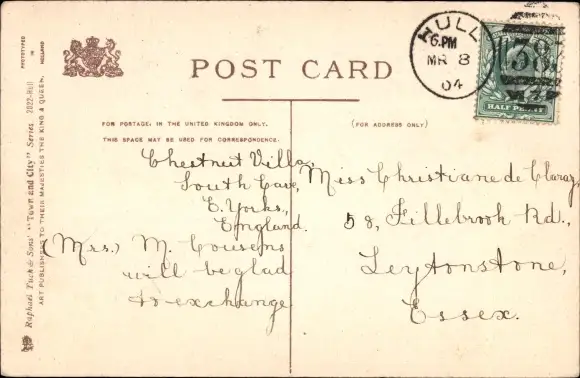 POST CARD
FOR POSTAGE, IN THE UNITED KINGDOM ONLY,
THIS SPACE MAY BE USED FOR CORRESPONDENCE.
(FOR ADDRESS ONLY)
HULL
6. PM
MR 8
04
383
HALF PENNY
Chestnut Villa,
South Cave,
E. Yorks.,
England.
(Mrs.) M. Cousens
will be glad
to exchange
Miss Christiane de Claraz,
58, Fillebrook Rd.,
Leytonstone,
Essex.
Raphael Tuck & Sons' "Town and City" Series 2022-Hull
ART PUBLISHERS TO THEIR MAJESTIES THE KING & QUEEN.
PROTOTYPED
IN
HOLLAND